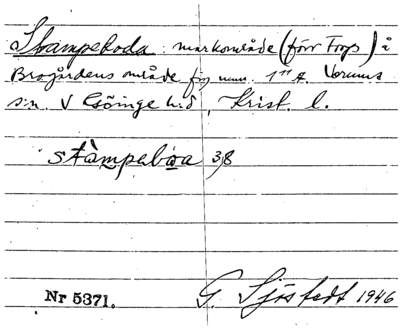 Stampeboda: markområde (förr Torp) å
Brogårdens område fig num. 1¹¹ A. Verums
s:n. V Göinge h:d, Krist. l.
stàmpeboa 38
Nr 5371. G. Sjöstedt 1946